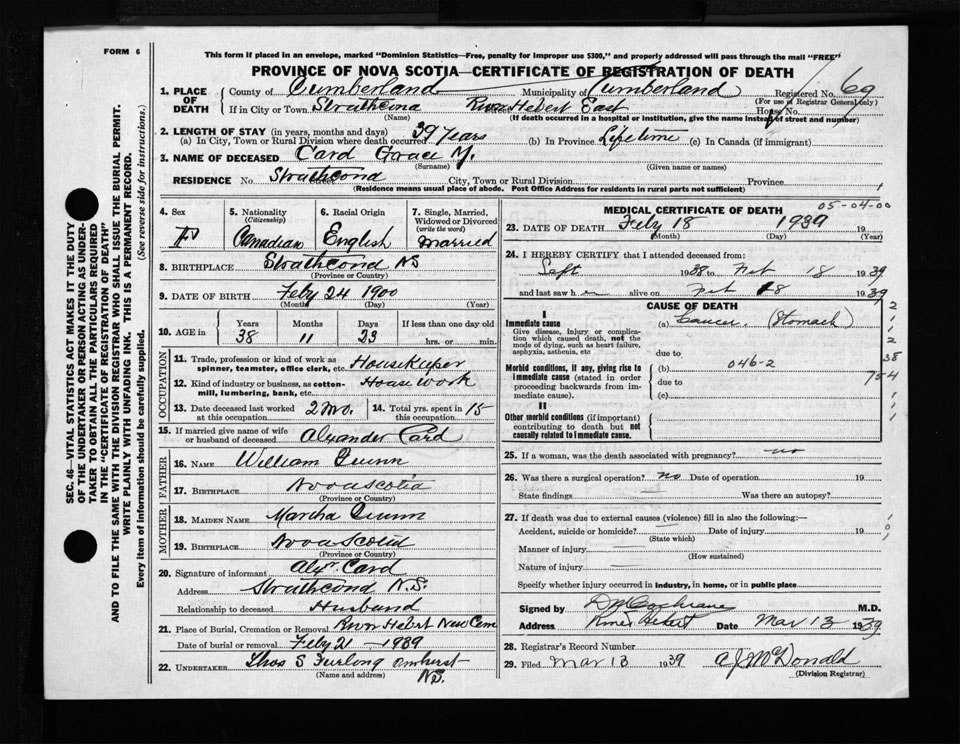 FORM 6
This form if placed in an envelope, marked "Dominion Statistics—Free, penalty for improper use $300," and properly addressed will pass through the mail "FREE"
PROVINCE OF NOVA SCOTIA—CERTIFICATE OF REGISTRATION OF DEATH
SEC. 46—VITAL STATISTICS ACT MAKES IT THE DUTY
OF THE UNDERTAKER OR PERSON ACTING AS UNDER-
TAKER TO OBTAIN ALL THE PARTICULARS REQUIRED
IN THE "CERTIFICATE OF REGISTRATION OF DEATH"
AND TO FILE THE SAME WITH THE DIVISION REGISTRAR WHO SHALL ISSUE THE BURIAL PERMIT.
WRITE PLAINLY WITH UNFADING INK. THIS IS A PERMANENT RECORD.
Every item of information should be carefully supplied. (See reverse side for instructions.)
1. PLACE OF DEATH County of Cumberland Municipality of Cumberland Registered No. 69
(For use of Registrar General only)
If in City or Town Strathcona River Hebert East House No.
(Name) (If death occurred in a hospital or institution, give the name instead of street and number)
2. LENGTH OF STAY (in years, months and days)
(a) In City, Town or Rural Division where death occurred 39 years (b) In Province Lifetime (c) In Canada (if immigrant)
3. NAME OF DECEASED Card Grace M.
(Surname) (Given name or names)
RESIDENCE No. Strathcona Street City, Town or Rural Division Province
(Residence means usual place of abode. Post Office Address for residents in rural parts not sufficient)
4. Sex F
5. Nationality (Citizenship) Canadian
6. Racial Origin English
7. Single, Married, Widowed or Divorced (write the word) Married
8. BIRTHPLACE Strathcona NS
(Province or Country)
9. DATE OF BIRTH Feby 24 1900
(Month) (Day) (Year)
10. AGE in Years Months Days If less than one day old
38 11 23 hrs. or min.
OCCUPATION
11. Trade, profession or kind of work as spinner, teamster, office clerk, etc. Housekeeper
12. Kind of industry or business, as cotton-mill, lumbering, bank, etc. House work
13. Date deceased last worked at this occupation 2 Mo. 14. Total yrs. spent in this occupation 15
15. If married give name of wife or husband of deceased Alexander Card
FATHER
16. NAME William Quinn
17. BIRTHPLACE Nova Scotia
(Province or Country)
MOTHER
18. MAIDEN NAME Martha Quinn
19. BIRTHPLACE Nova Scotia
(Province or Country)
20. Signature of informant Alex. Card
Address Strathcona N.S.
Relationship to deceased Husband
21. Place of Burial, Cremation or Removal River Hebert New Cem
Date of burial or removal Feby 21 - 1939
22. UNDERTAKER Thos S Furlong Amherst
(Name and address) N.S.
MEDICAL CERTIFICATE OF DEATH 05-04-00
23. DATE OF DEATH Feby 18 1939 19
(Month) (Day) (Year)
24. I HEREBY CERTIFY that I attended deceased from:
Sept 1938 to Feb 18 1939
and last saw h er alive on Feb 18 1939
CAUSE OF DEATH
I
Immediate cause (a) Cancer (Stomach)
Give disease, injury or complication which caused death, not the mode of dying, such as heart failure, asphyxia, asthenia, etc due to
Morbid conditions, if any, giving rise to immediate cause (stated in order proceeding backwards from immediate cause). (b) 046-2
due to
(c)
II
Other morbid conditions (if important) contributing to death but not causally related to immediate cause.
25. If a woman, was the death associated with pregnancy? no
26. Was there a surgical operation? no Date of operation 19
State findings Was there an autopsy?
27. If death was due to external causes (violence) fill in also the following:—
Accident, suicide or homicide? Date of injury 19
(State which)
Manner of injury
(How sustained)
Nature of injury
Specify whether injury occurred in industry, in home, or in public place
Signed by D M Cochrane M.D.
Address River Hebert Date Mar 13 1939
28. Registrar's Record Number
29. Filed Mar 13 1939 A J McDonald
(Division Registrar)